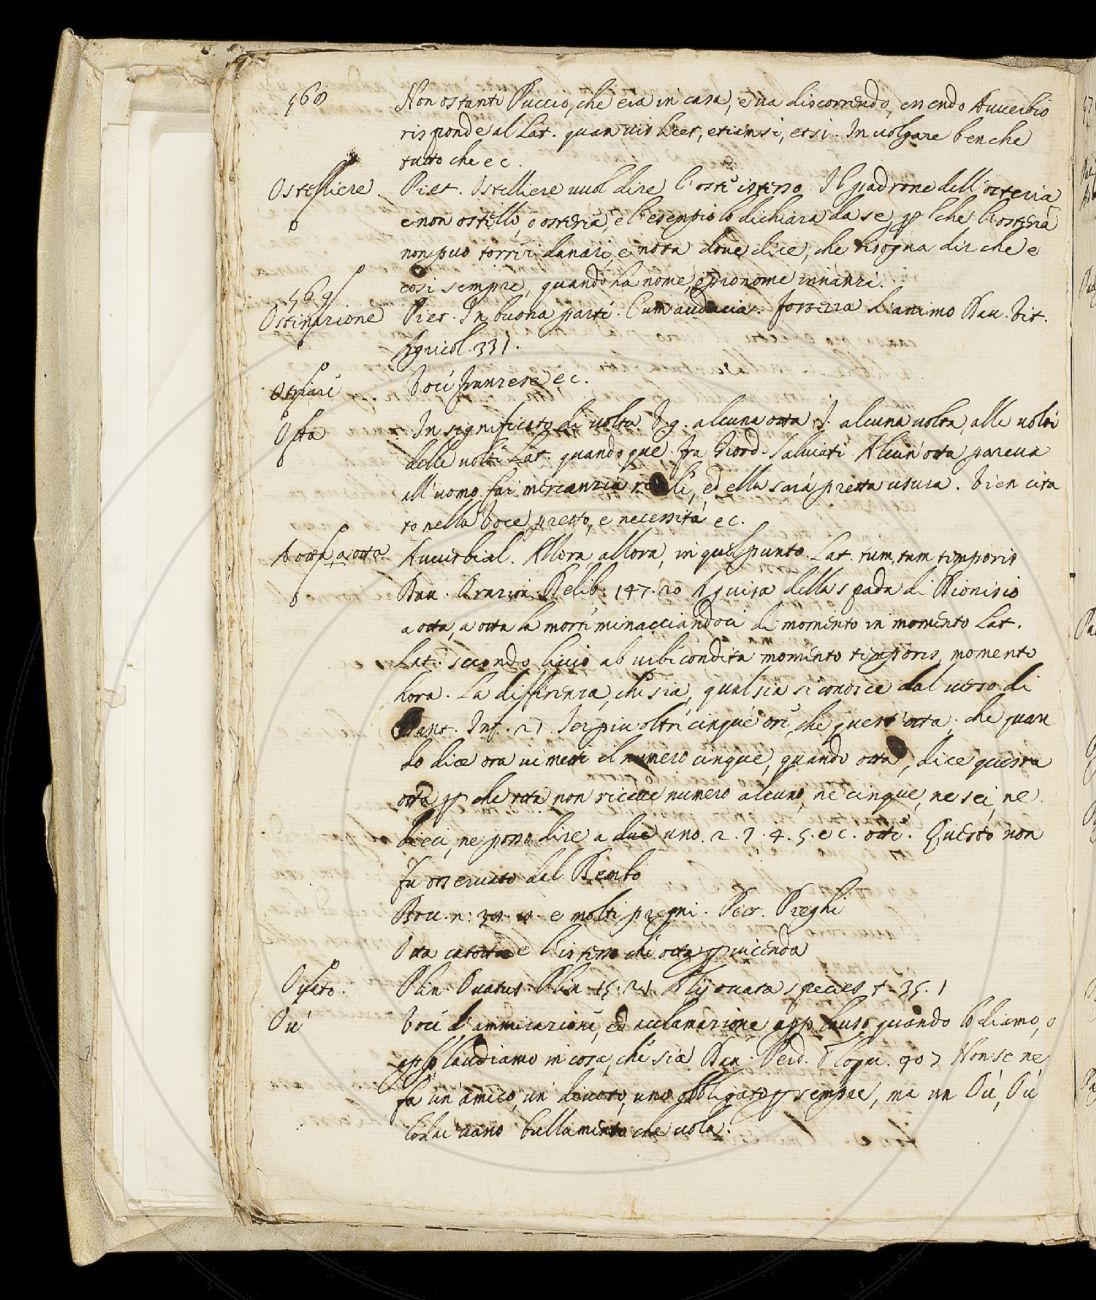 568 Non ostante Puccio, che era in casa, e va discorrendo, essendo Avverbio
risponde al Lat. quamvis licet, etiamsi, etsi. In volgare benche
tutto che ec.
Ostelliere. Piet. Ostelliere vuol dire l'oste istesso Il padrone dell'osteria
e non ostello, o osteria, e l'esempio lo dichiara da se, che l'osteria
non puo torre i danari, e nota dove dice, che bisogna dir che e
cosi sempre, quando ha nome, o pronome innanzi.
569
Ostinazione Pier. In buona parte. Cum audacia. fortezza d'animo Dav. Vit.
Agricol. 331.
Voce franzese ec.
Otta In significato di volta V.g. alcuna otta i. alcuna volta, alle volte
delle volte Lat. quandoque. fra Giord. Salviati Alcun'otta pareva
all'uomo far mercanzia, ed ella sarà pretta usura. Vien cita
to nella Voce pretto, e necessità ec.
A otta a otta Avverbial. Allora allora, in quel punto. Lat. tum, tum temporis
Dav. Orazion Delib. 147.20 A guisa della spada di Dionisio
a otta, a otta la morte minacciandoci di momento in momento Lat.
Lat. secondo Livio ab urbe condita momento temporis, momento
hora. La differenza, che sia, qual sia si conosce dal verso di
Dant. Inf. 21. Ier piu oltre cinque ore, che quest'otta. che quan
do dice ora vi mette il numero cinque, quando otta, dice questa
otta che otta non riceve numero alcuno, ne cinque, ne sei, ne
dieci, ne posso dire a due uno. 2. 3. 4. 5. ec. otte. Questo non
fu osservato dal Bembo
e molti pregni. Pier. Preghi
Otta catotta e l'istesso che otta vicenda
Plin. Ovatus Plin. 15. 21 species 35. 1
Voce d'ammirazione, ed acclamazione applauso, quando lodiamo, o
applaudiamo in cosa, che sia Dav. Perd. Eloqu. 407 Non se ne
fa un amico, un devoto, uno obbligato sempre, ma un Où, Où
vano bullamento che vola.